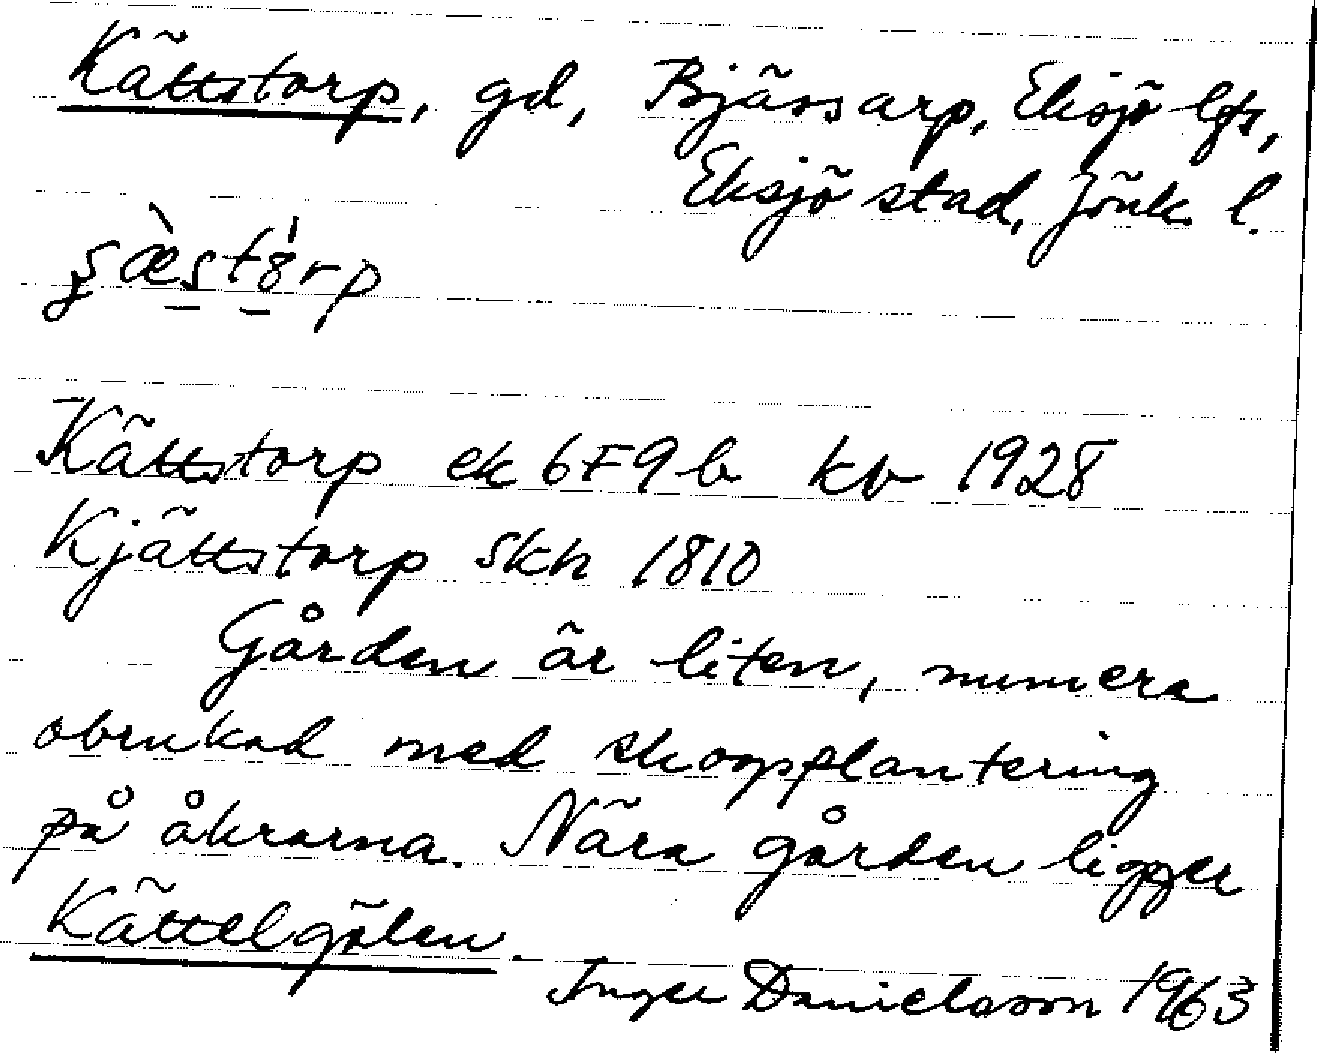 Kättstorp, gd, Bjässarp, Eksjö lfs,
Eksjö stad, Jönk. l.
Kättstorp ek 6F9b kb 1928
Kjättstorp skh 1810
Gården är liten, numera
obrukad med skogsplantering
på åkrarna. Nära gården ligger
Kättelgölen.
Inger Danielsson 1963